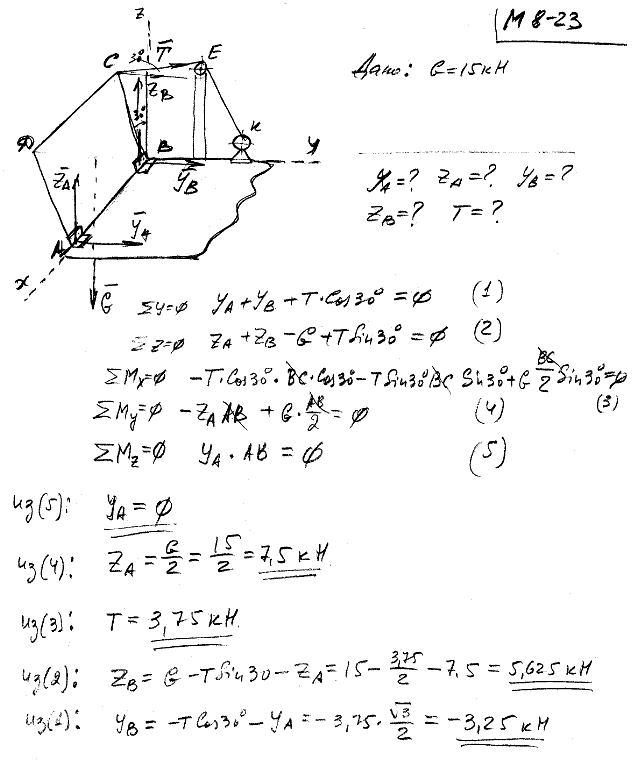 М 8-23
Дано: G=15кН
z
C 30° T̄ E
Z̄_B
30°
B K y
Z̄_A Ȳ_B
Ȳ_A
A
x
Ḡ
Y_A=? Z_A=? Y_B=?
Z_B=? T=?
ΣY=0 Y_A+Y_B+T·Cos30°=0 (1)
ΣZ=0 Z_A+Z_B-G+TSin30°=0 (2)
ΣM_x=0 -T·Cos30°·BC·Cos30°-TSin30°BC Sin30°+G BC/2 Sin30°=0 (3)
ΣM_y=0 -Z_A AB + G·AB/2=0 (4)
ΣM_z=0 Y_A·AB=0 (5)
из(5): Y_A=0
из(4): Z_A=G/2=15/2=7,5кН
из(3): T=3,75кН.
из(2): Z_B=G-TSin30-Z_A=15-3,75/2-7.5=5,625кН
из(1): Y_B=-TCos30°-Y_A=-3,75·√3/2=-3,25кН